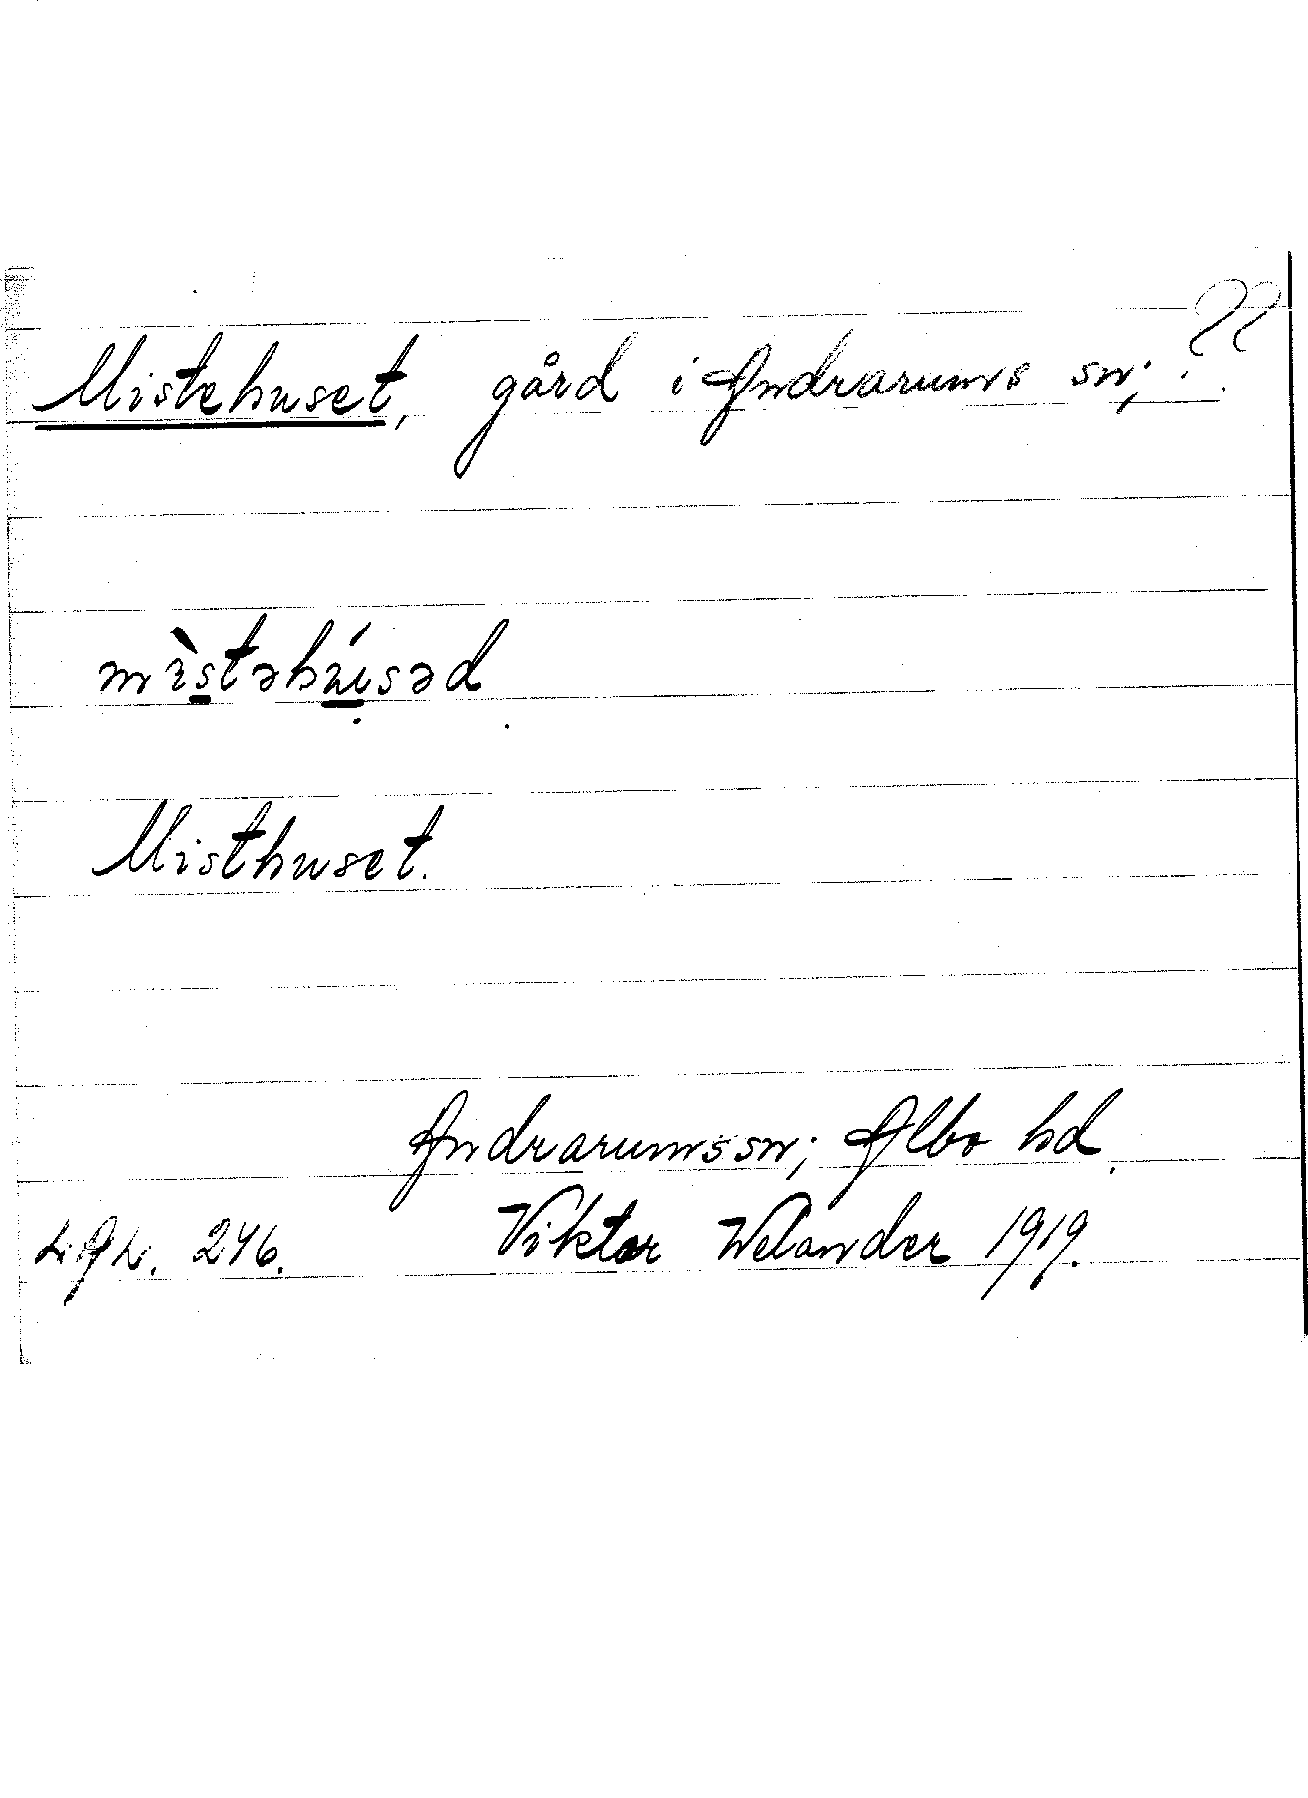 Mistehuset, gård i Andrarums sn; ??
mìstəhúisəd
Misthuset.
Andrarums sn; Albo hd.
L.A.L. 246. Viktor Welander 1919.